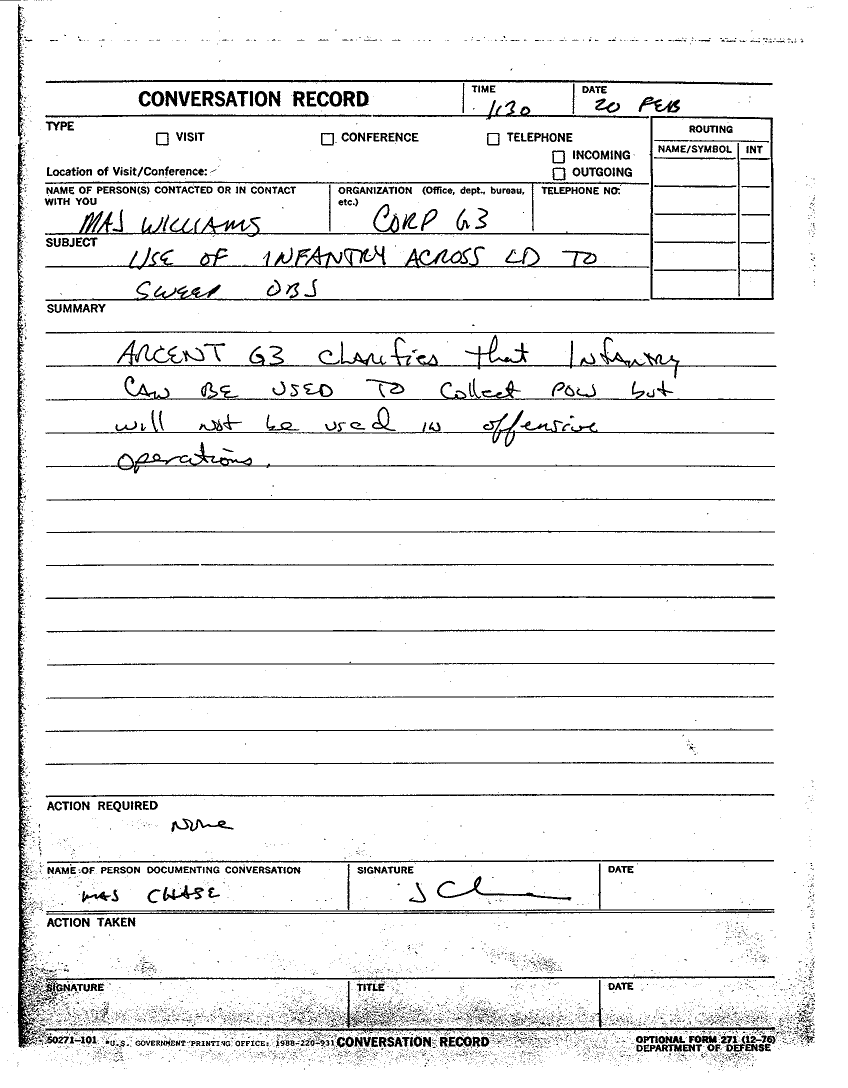 CONVERSATION RECORD
TIME
1130
DATE
20 FEB
TYPE
☐ VISIT ☐ CONFERENCE ☐ TELEPHONE
☐ INCOMING
☐ OUTGOING
Location of Visit/Conference:
ROUTING
NAME/SYMBOL INT
NAME OF PERSON(S) CONTACTED OR IN CONTACT
WITH YOU
MAJ WILLIAMS
ORGANIZATION (Office, dept., bureau,
etc.)
CORP G3
TELEPHONE NO:
SUBJECT
USE OF INFANTRY ACROSS LD TO
SWEEP OBJ
SUMMARY
ARCENT G3 clarifies that Infantry
CAN BE USED TO Collect POW but
will not be used in offensive
operations.
ACTION REQUIRED
None
NAME OF PERSON DOCUMENTING CONVERSATION
MAJ CHASE
SIGNATURE
DATE
ACTION TAKEN
SIGNATURE
TITLE
DATE
50271-101 *U.S. GOVERNMENT PRINTING OFFICE: 1988-220-931 CONVERSATION RECORD
OPTIONAL FORM 271 (12-76)
DEPARTMENT OF DEFENSE